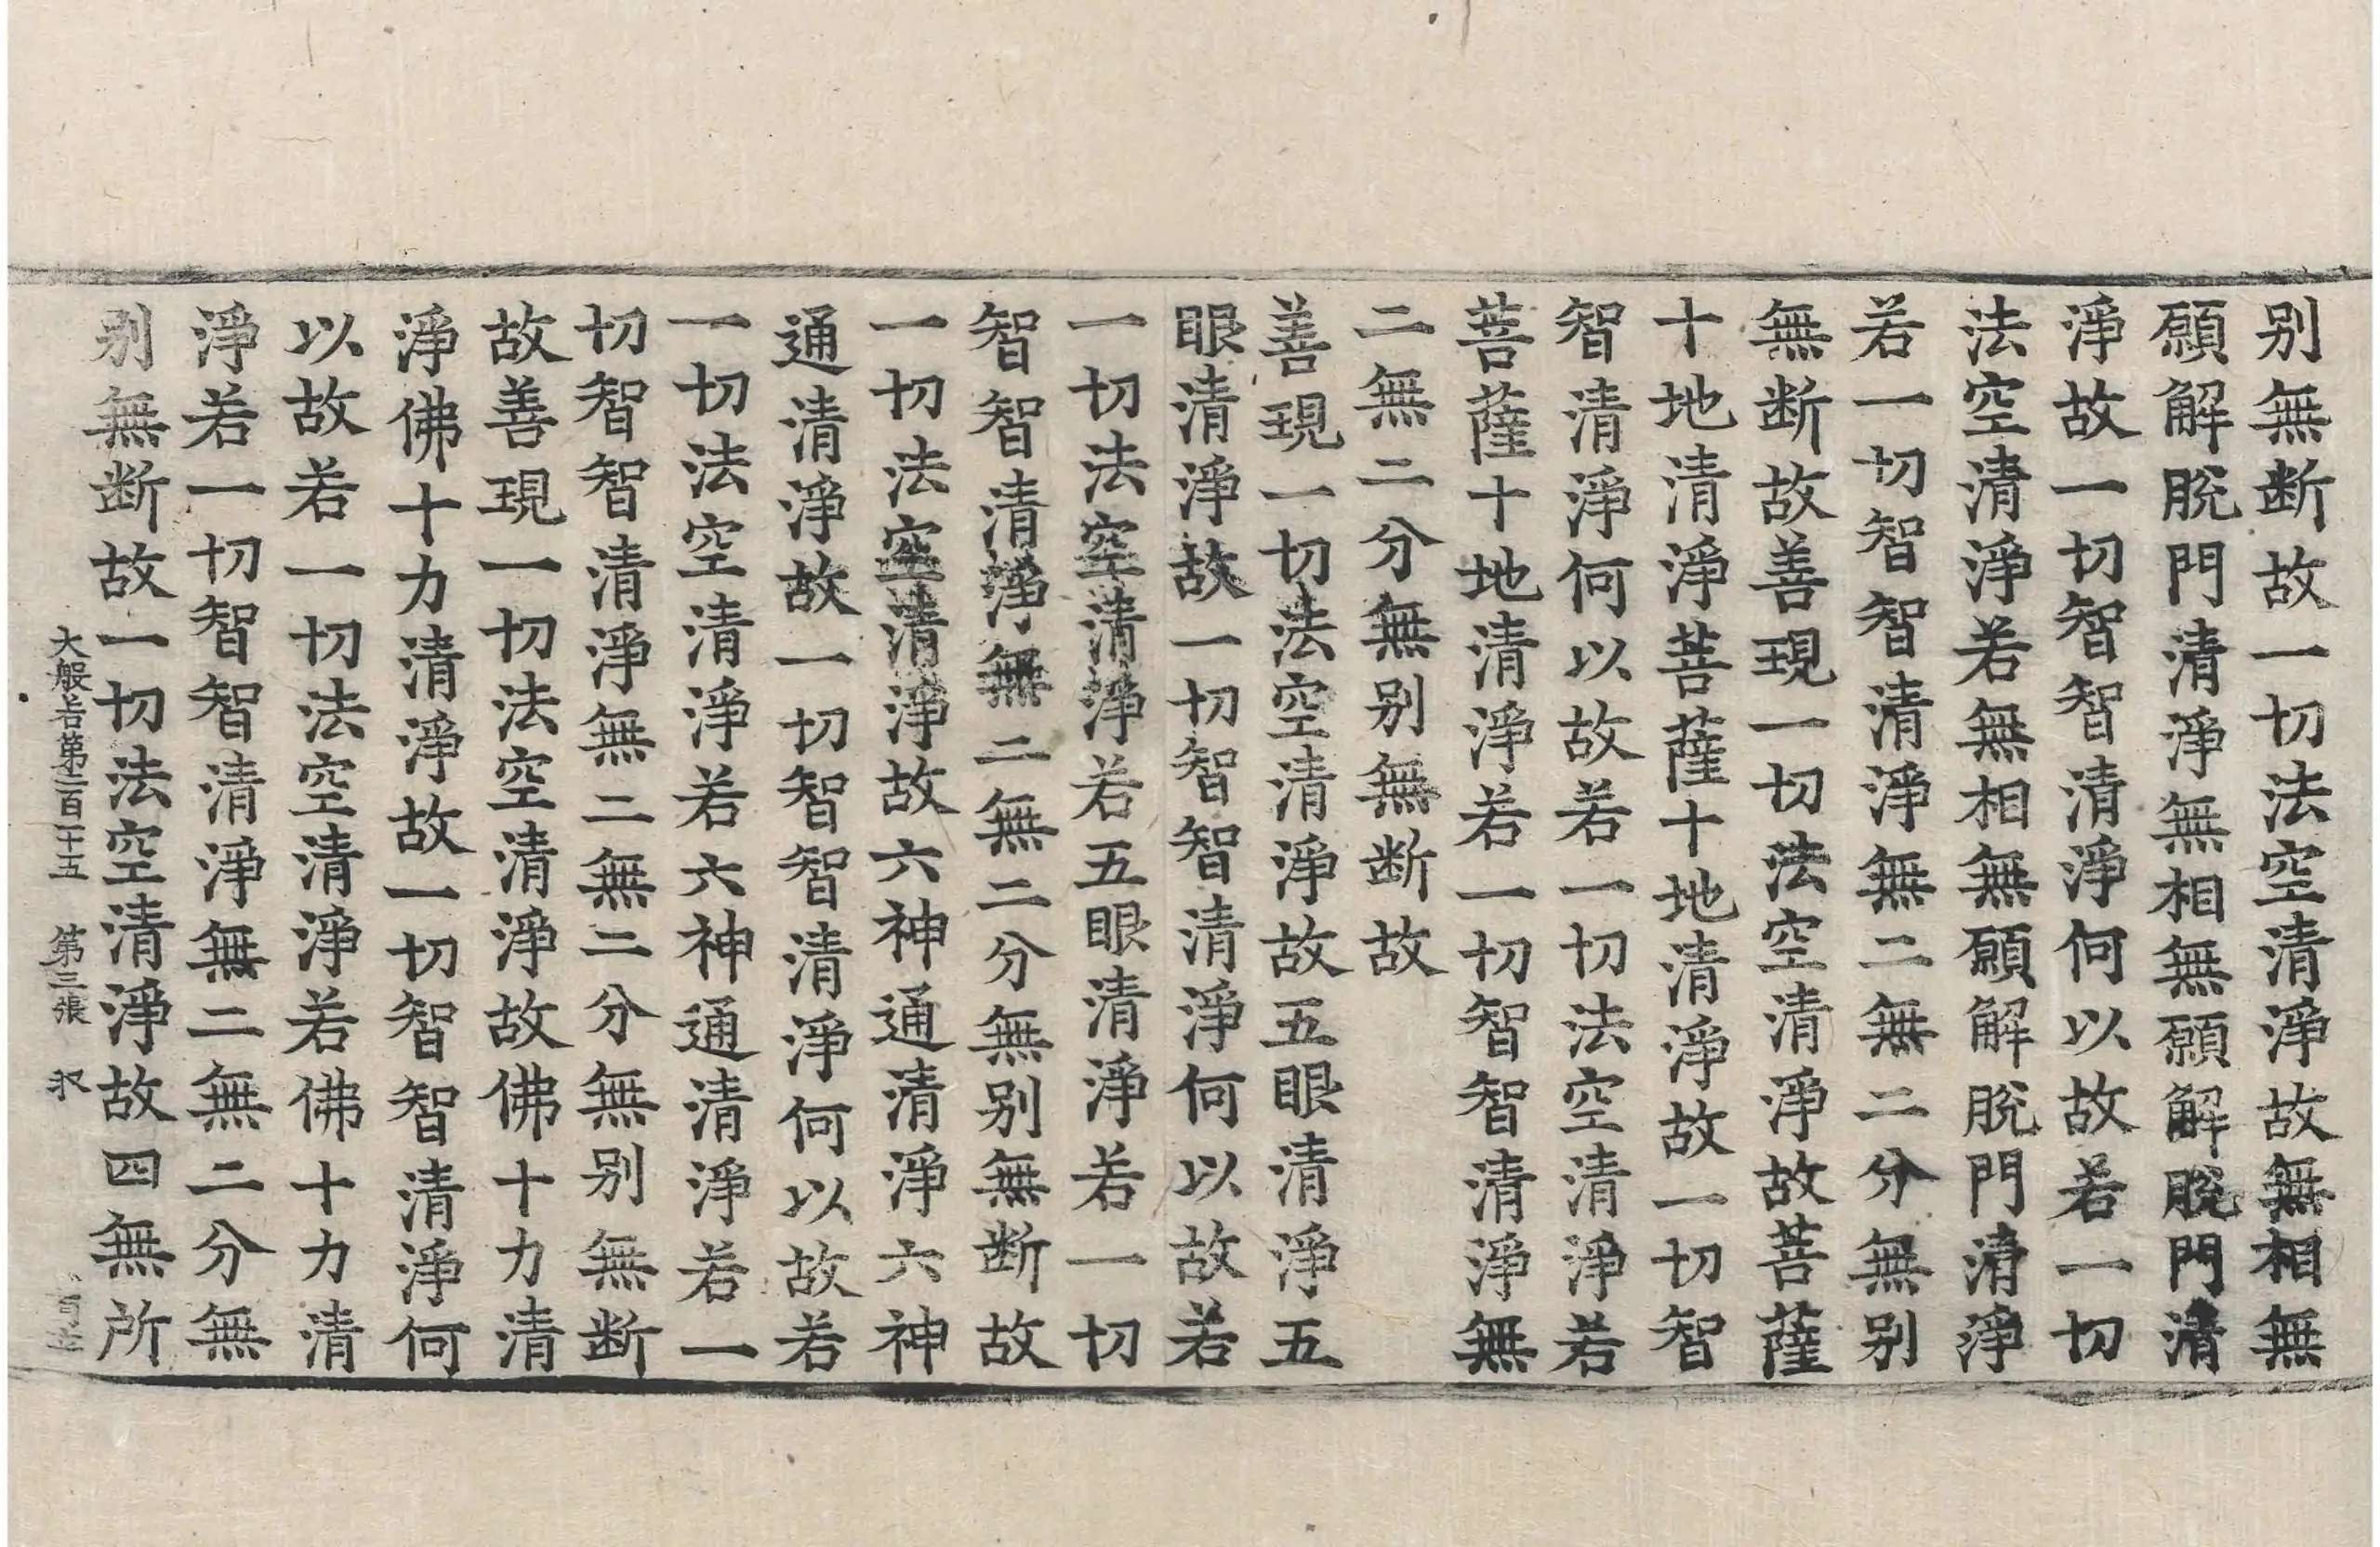 别無断故一切法空清淨故無相無
願解脫門清淨無相無願解脫門清
淨故一切智智清淨何以故若一切
法空清淨若無相無願解脫門清淨
若一切智智清淨無二無二分無别
無断故善現一切法空清淨故菩薩
十地清淨菩薩十地清淨故一切智
智清淨何以故若一切法空清淨若
菩薩十地清淨若一切智智清淨無
二無二分無别無断故
善現一切法空清淨故五眼清淨五
眼清淨故一切智智清淨何以故若
一切法空清淨若五眼清淨若一切
智智清淨無二無二分無别無断故
一切法空清淨故六神通清淨六神
通清淨故一切智智清淨何以故若
一切法空清淨若六神通清淨若一
切智智清淨無二無二分無别無断
故善現一切法空清淨故佛十力清
淨佛十力清淨故一切智智清淨何
以故若一切法空清淨若佛十力清
淨若一切智智清淨無二無二分無
别無断故一切法空清淨故四無所
大般若第二百二十五 第三張